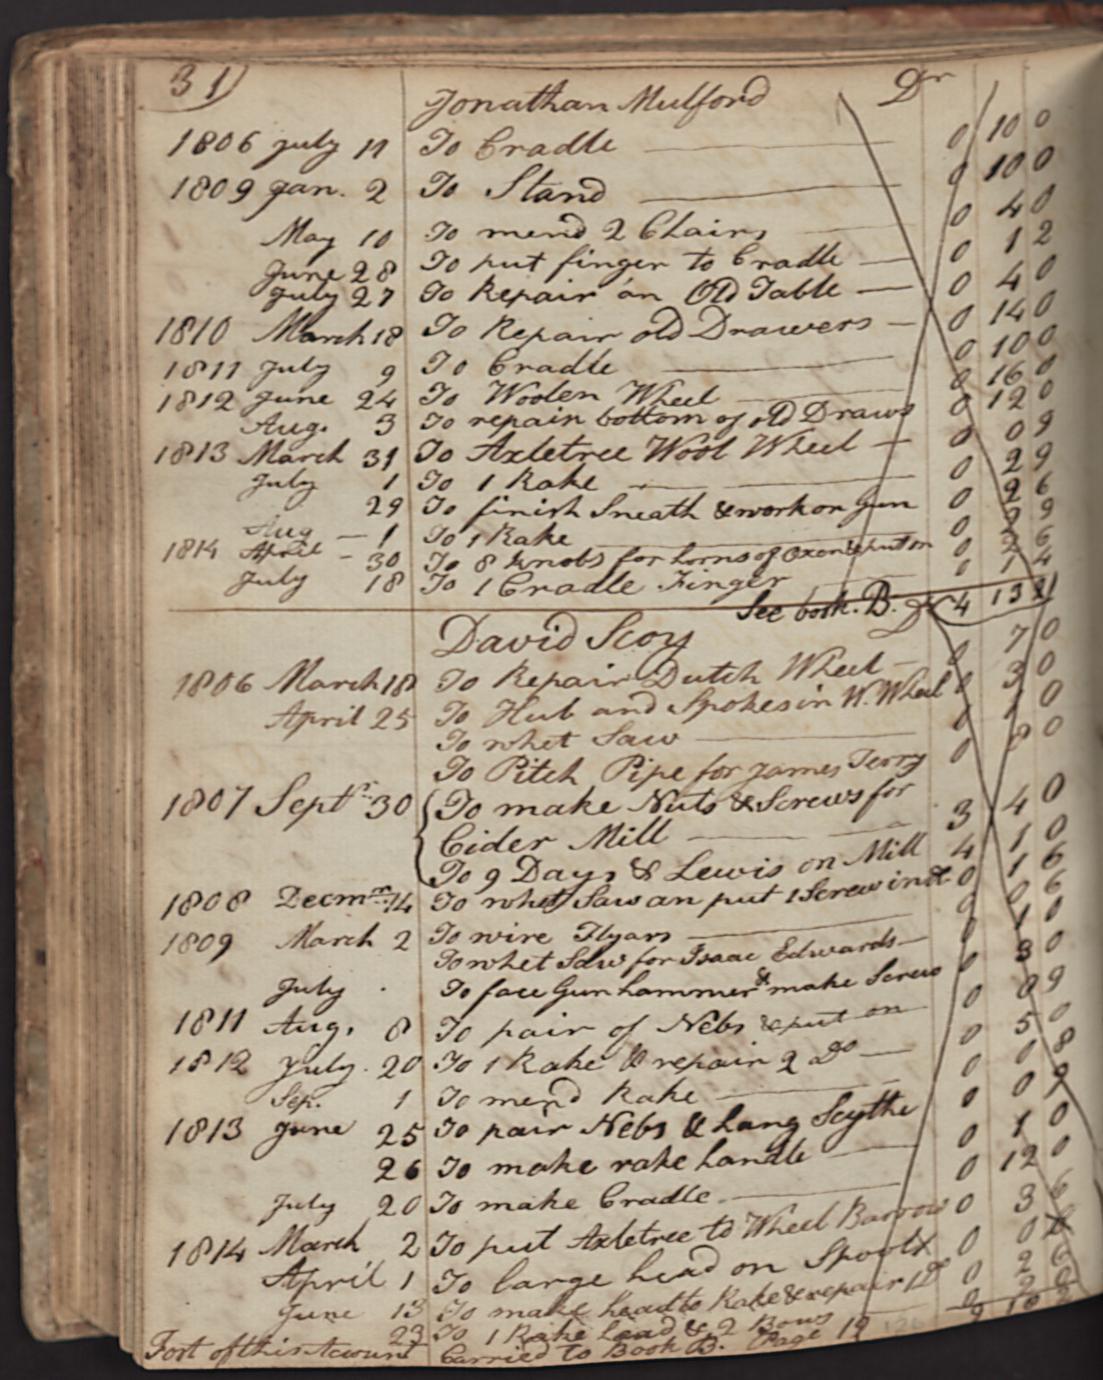 31)
Jonathan Mulford Dr
1806 July 11 To Cradle 0 10 0
1809 Jan. 2 To Stand 0 10 0
May 10 To mend 2 Chairs 0 4 0
June 28 To put finger to Cradle 0 1 2
July 27 To Repair an Old Table 0 4 0
1810 March 18 To Repair old Drawers 0 14 0
1811 July 9 To Cradle 0 10 0
1812 June 24 To Woolen Wheel 0 16 0
Aug. 3 To repair bottom of old Draws 0 12 0
1813 March 31 To Axletree Wool Wheel 0 0 9
July 1 To 1 Rake 0 2 9
29 To finish Sneath & work on Gun 0 2 6
Aug 1 To 1 Rake 0 2 9
1814 April 30 To 8 knobs for horns of Oxen & put on 0 2 6
July 18 To 1 Cradle Finger 0 1 4
See book. B. 4 13
David Scoy Dr
1806 March 18 To Repair Dutch Wheel 0 7 0
April 25 To Hub and Spokes in W. Wheel 0 3 0
To whet Saw 0 1 0
To Pitch Pipe for James Terry 0 8 0
1807 Septr. 30 To make Nuts & Screws for
Cider Mill 3 4 0
To 9 Days & Lewis on Mill 4 1 0
1808 Decmr. 14 To whet Saw an put 1 Screw in do 0 1 6
1809 March 2 To wire Flyars 0 0 6
To whet Saw for Isaac Edwards 0 1 0
July To face Gun hammer & make Screw 0 3 0
1811 Aug. 8 To pair of Nebs & put on 0 0 9
1812 July. 20 To 1 Rake & repair 2 do 0 5 0
Sep. 1 To mend Rake 0 0 8
1813 June 25 To pair Nebs & hang Scythe 0 0 9
26 To make rake handle 0 1 0
July 20 To make Cradle 0 12 0
1814 March 2 To put Axletree to Wheel Barrow 0 3 6
April 1 To large head on Spool 0 0
June 13 To make head to Rake & repair 1 Do 0 2 6
23 To 1 Rake head & 2 Bows 0 2
Foot of this Account Carried to Book B. Page 19 9 18